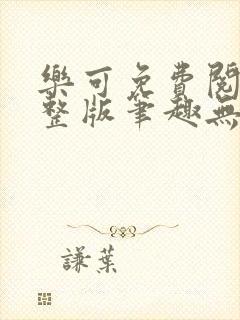 樂可免費閱
整版筆趣無
謙葉